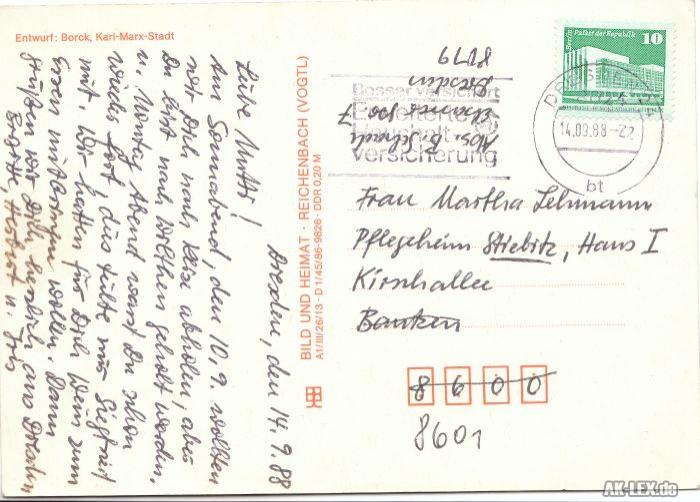 Entwurf: Borck, Karl-Marx-Stadt
Dresden, den 14.9.88
Liebe Mutti!
Am Sonnabend, den 10.9. wollten
wir Dich nach hier abholen, aber
Du bist nach geholt worden.
u. Montag Abend warst Du schon
wieder fort, das teilte uns Siegfried
mit. Wir hatten für Dich Wein zum
Essen mitnehmen wollen. Dann
grüßen wir Dich herzlich aus Dresden
Brigitte, Herbert u.
BILD UND HEIMAT · REICHENBACH (VOGTL)
A1/III/26/13 · D 1/45/86-9826 · DDR 0,20 M
Abs.: B. Scholz
Dresden
8019
Besser versichert
Erweiterte
Haushalt-
versicherung
Berlin Palast der Republik
10
DRESDEN
14.09.88-22
bt
Frau Martha Lehmann
Pflegeheim Stiebitz, Haus I
Kirschallee
Bautzen
8600
8601
AK-LEX.de